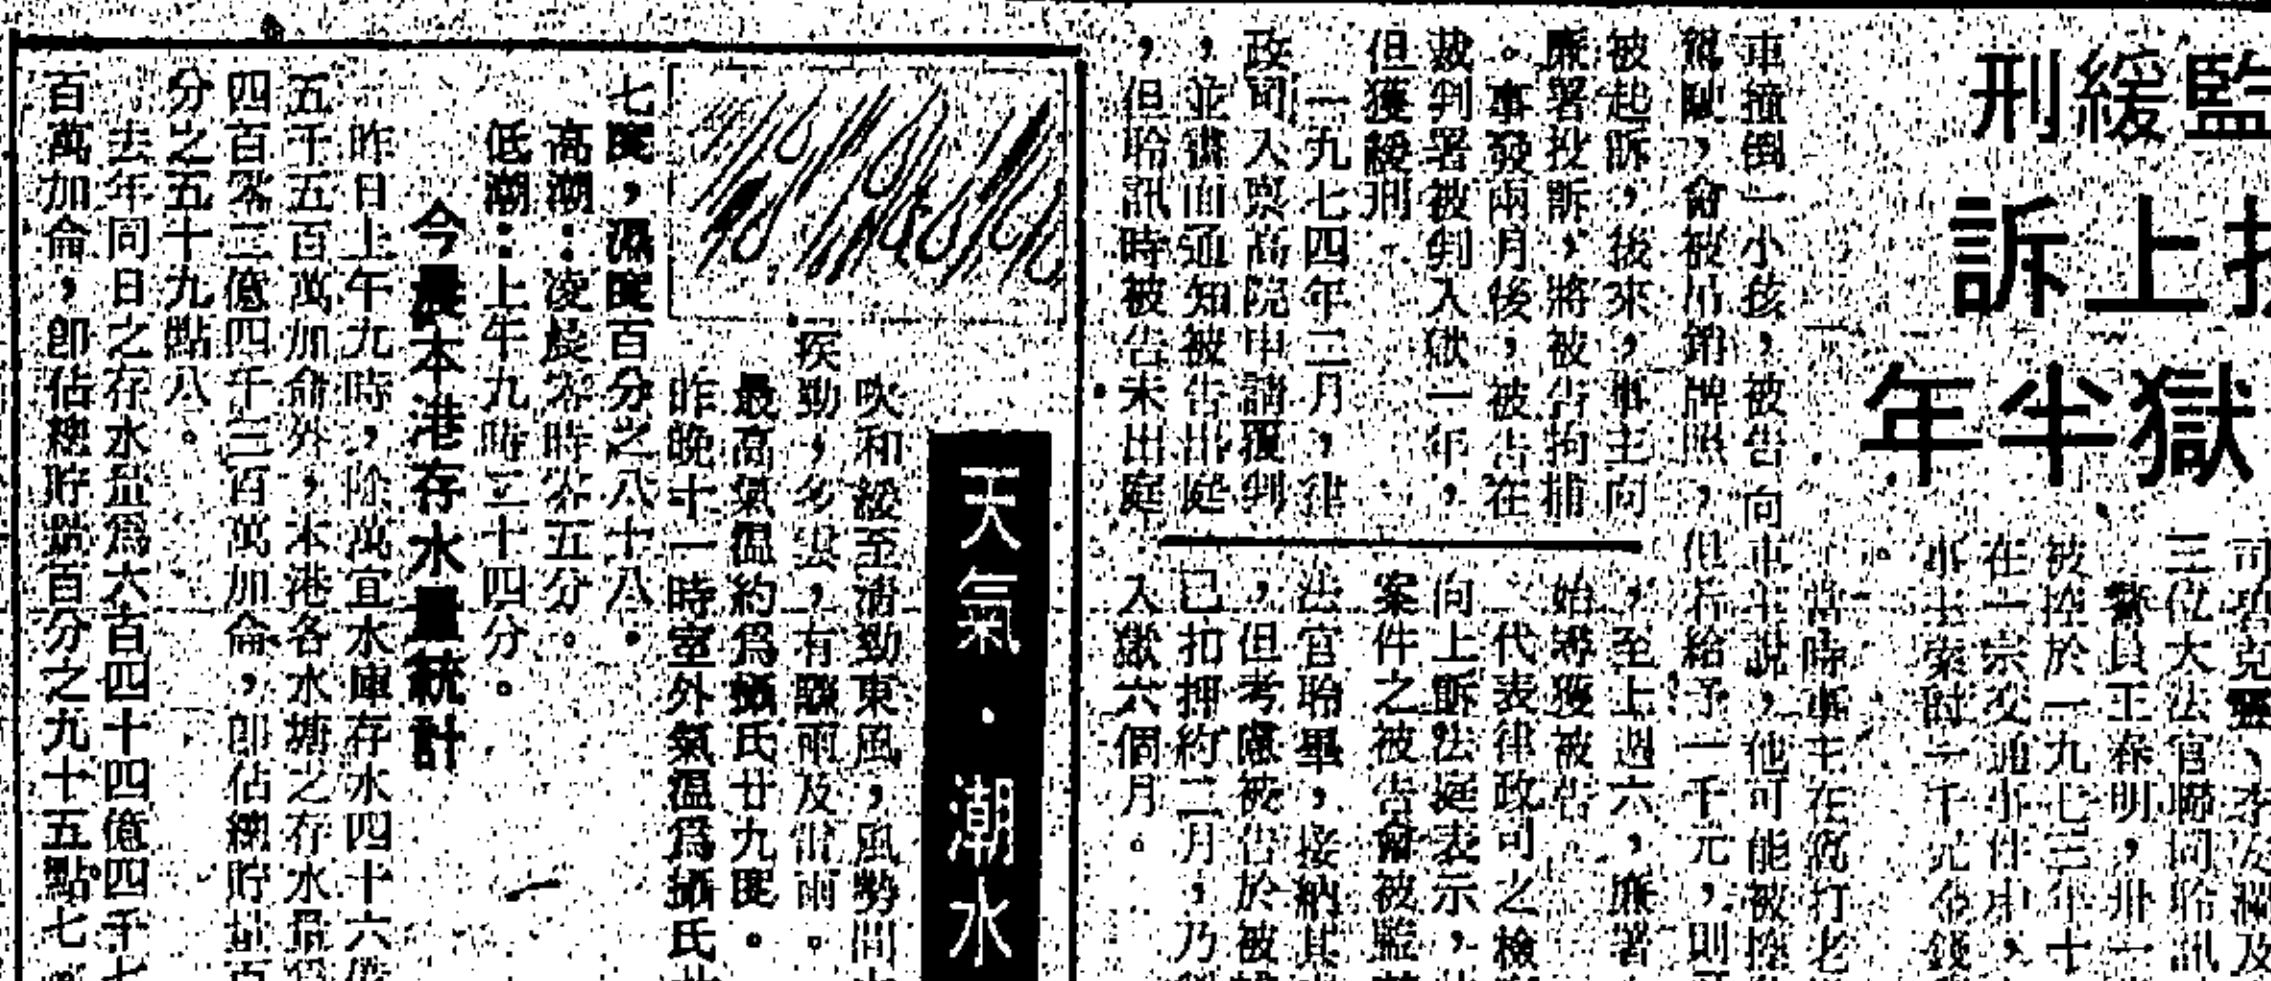 監緩刑
上訴
獄半年
三位大法官聯同聆訊
警員王春明,卅一
被控於一九七三年十
在一宗交通事件中,
事主索財一千元金錢
。
當時事主在窩打老
車撞倒一小孩,被告向車主說,他可能被控
駕駛,會被吊銷牌照,但若給予一千元,則
被起訴,後來,事主向
廉署投訴,將被告拘捕
。事發兩月後,被告在
裁判署被判入獄一年,
但獲緩刑。
一九七四年三月,律
政司入稟高院申請覆判
,並書面通知被告出庭
,但聆訊時被告未出庭
,至上週六,廉署
始尋獲被告。
代表律政司之檢
向上訴法庭表示,
案件之被告曾被監
法官聆畢,接納其
,但考慮被告於被
已扣押約二月,乃
入獄六個月。
天氣・潮水
吹和緩至清勁東風,風勢間
疾勁,多雲,有驟雨及雷雨。
最高氣溫約爲攝氏廿九度。
昨晚十一時室外氣溫爲攝氏廿
七度,濕度百分之八十八。
高潮:凌晨零時零五分。
低潮:上午九時三十四分。
今晨本港存水量統計
昨日上午九時,除萬宜水庫存水四十六億
五千五百萬加侖外,本港各水塘之存水量爲
四百零三億四千三百萬加侖,卽佔總貯量百
分之五十九點八。
去年同日之存水量爲六百四十四億四千七
百萬加侖,卽佔總貯量百分之九十五點七。